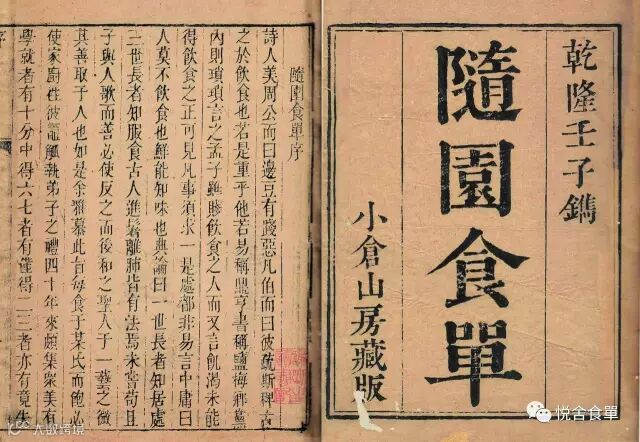 乾隆壬子鐫
隨園食單
小倉山房藏版
隨園食單序
詩人美周公而曰邊豆有踐惡凡伯而曰彼疏斯稗古
之於飲食也若是重乎他若易稱鼎亨書稱鹽梅鄉黨
內則瑣瑣言之孟子雖賤飲食之人而又言飢渴未能
得飲食之正可見凡事須求一是處都非易言中庸曰
人莫不飲食也鮮能知味也典論曰一世長者知居處
三世長者知服食古人進鬐離肺皆有法焉未嘗苟且
子與人歌而善必使反之而後和之聖人于一藝之微
其善取于人也如是余雅慕此旨每食于某氏而飽必
使家廚往彼竈觚執弟子之禮四十年來頗集衆美有
學就者有十分中得六七者有僅得二三者亦有竟失
序
大数跨境
悦舍食單